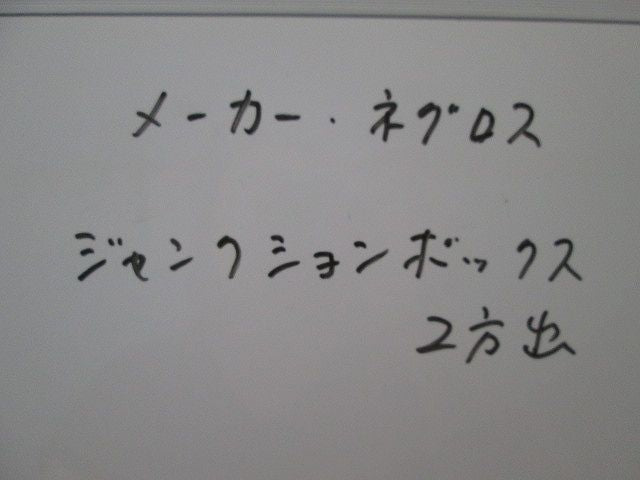 メーカー・ネグロス
ジャンクションボックス
2方出